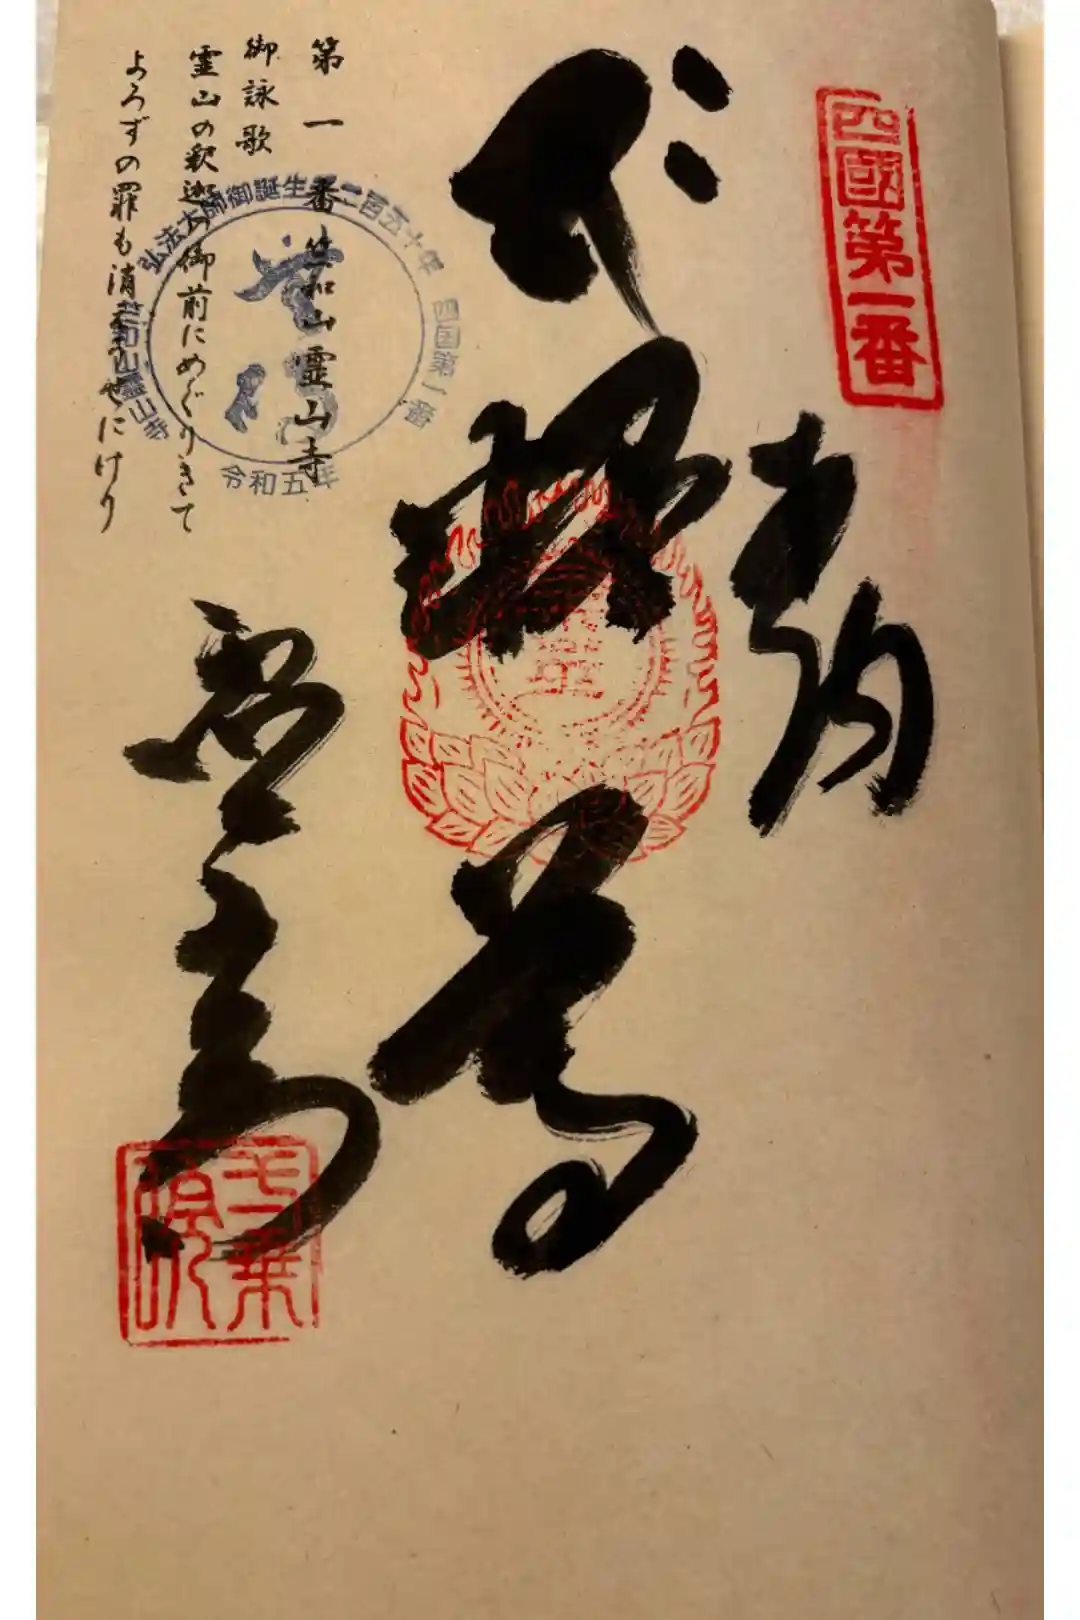 四國第一番
奉納
釈尊
第一番 竺和山霊山寺
御詠歌
霊山の釈迦の御前にめぐりきて
よろずの罪も消えうせにけり
弘法大師御誕生千二百五十年
四国第一番
竺和山霊山寺
令和五年